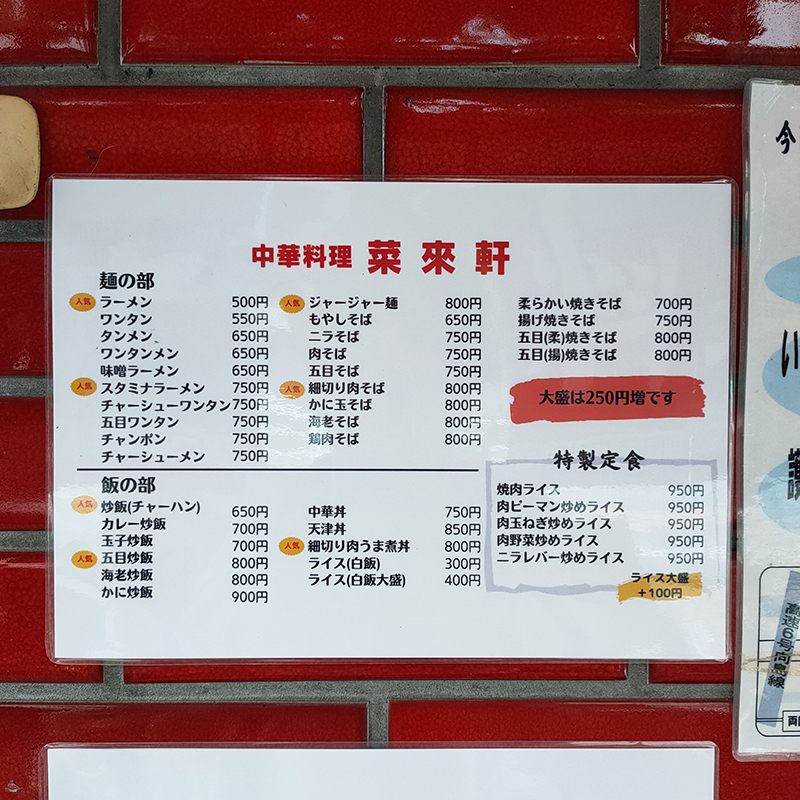 中華料理 菜來軒
麺の部
人気 ラーメン 500円
ワンタン 550円
タンメン 650円
ワンタンメン 650円
味噌ラーメン 650円
人気 スタミナラーメン 750円
チャーシューワンタン 750円
五目ワンタン 750円
チャンポン 750円
チャーシューメン 750円
人気 ジャージャー麺 800円
もやしそば 650円
ニラそば 750円
肉そば 750円
五目そば 750円
人気 細切り肉そば 800円
かに玉そば 800円
海老そば 800円
鶏肉そば 800円
柔らかい焼きそば 700円
揚げ焼きそば 750円
五目(柔)焼きそば 800円
五目(揚)焼きそば 800円
大盛は250円増です
飯の部
人気 炒飯(チャーハン) 650円
カレー炒飯 700円
玉子炒飯 700円
人気 五目炒飯 800円
海老炒飯 800円
かに炒飯 900円
中華丼 750円
天津丼 850円
人気 細切り肉うま煮丼 800円
ライス(白飯) 300円
ライス(白飯大盛) 400円
特製定食
焼肉ライス 950円
肉ピーマン炒めライス 950円
肉玉ねぎ炒めライス 950円
肉野菜炒めライス 950円
ニラレバー炒めライス 950円
ライス大盛
+100円
今
い
高速6号向島線
両